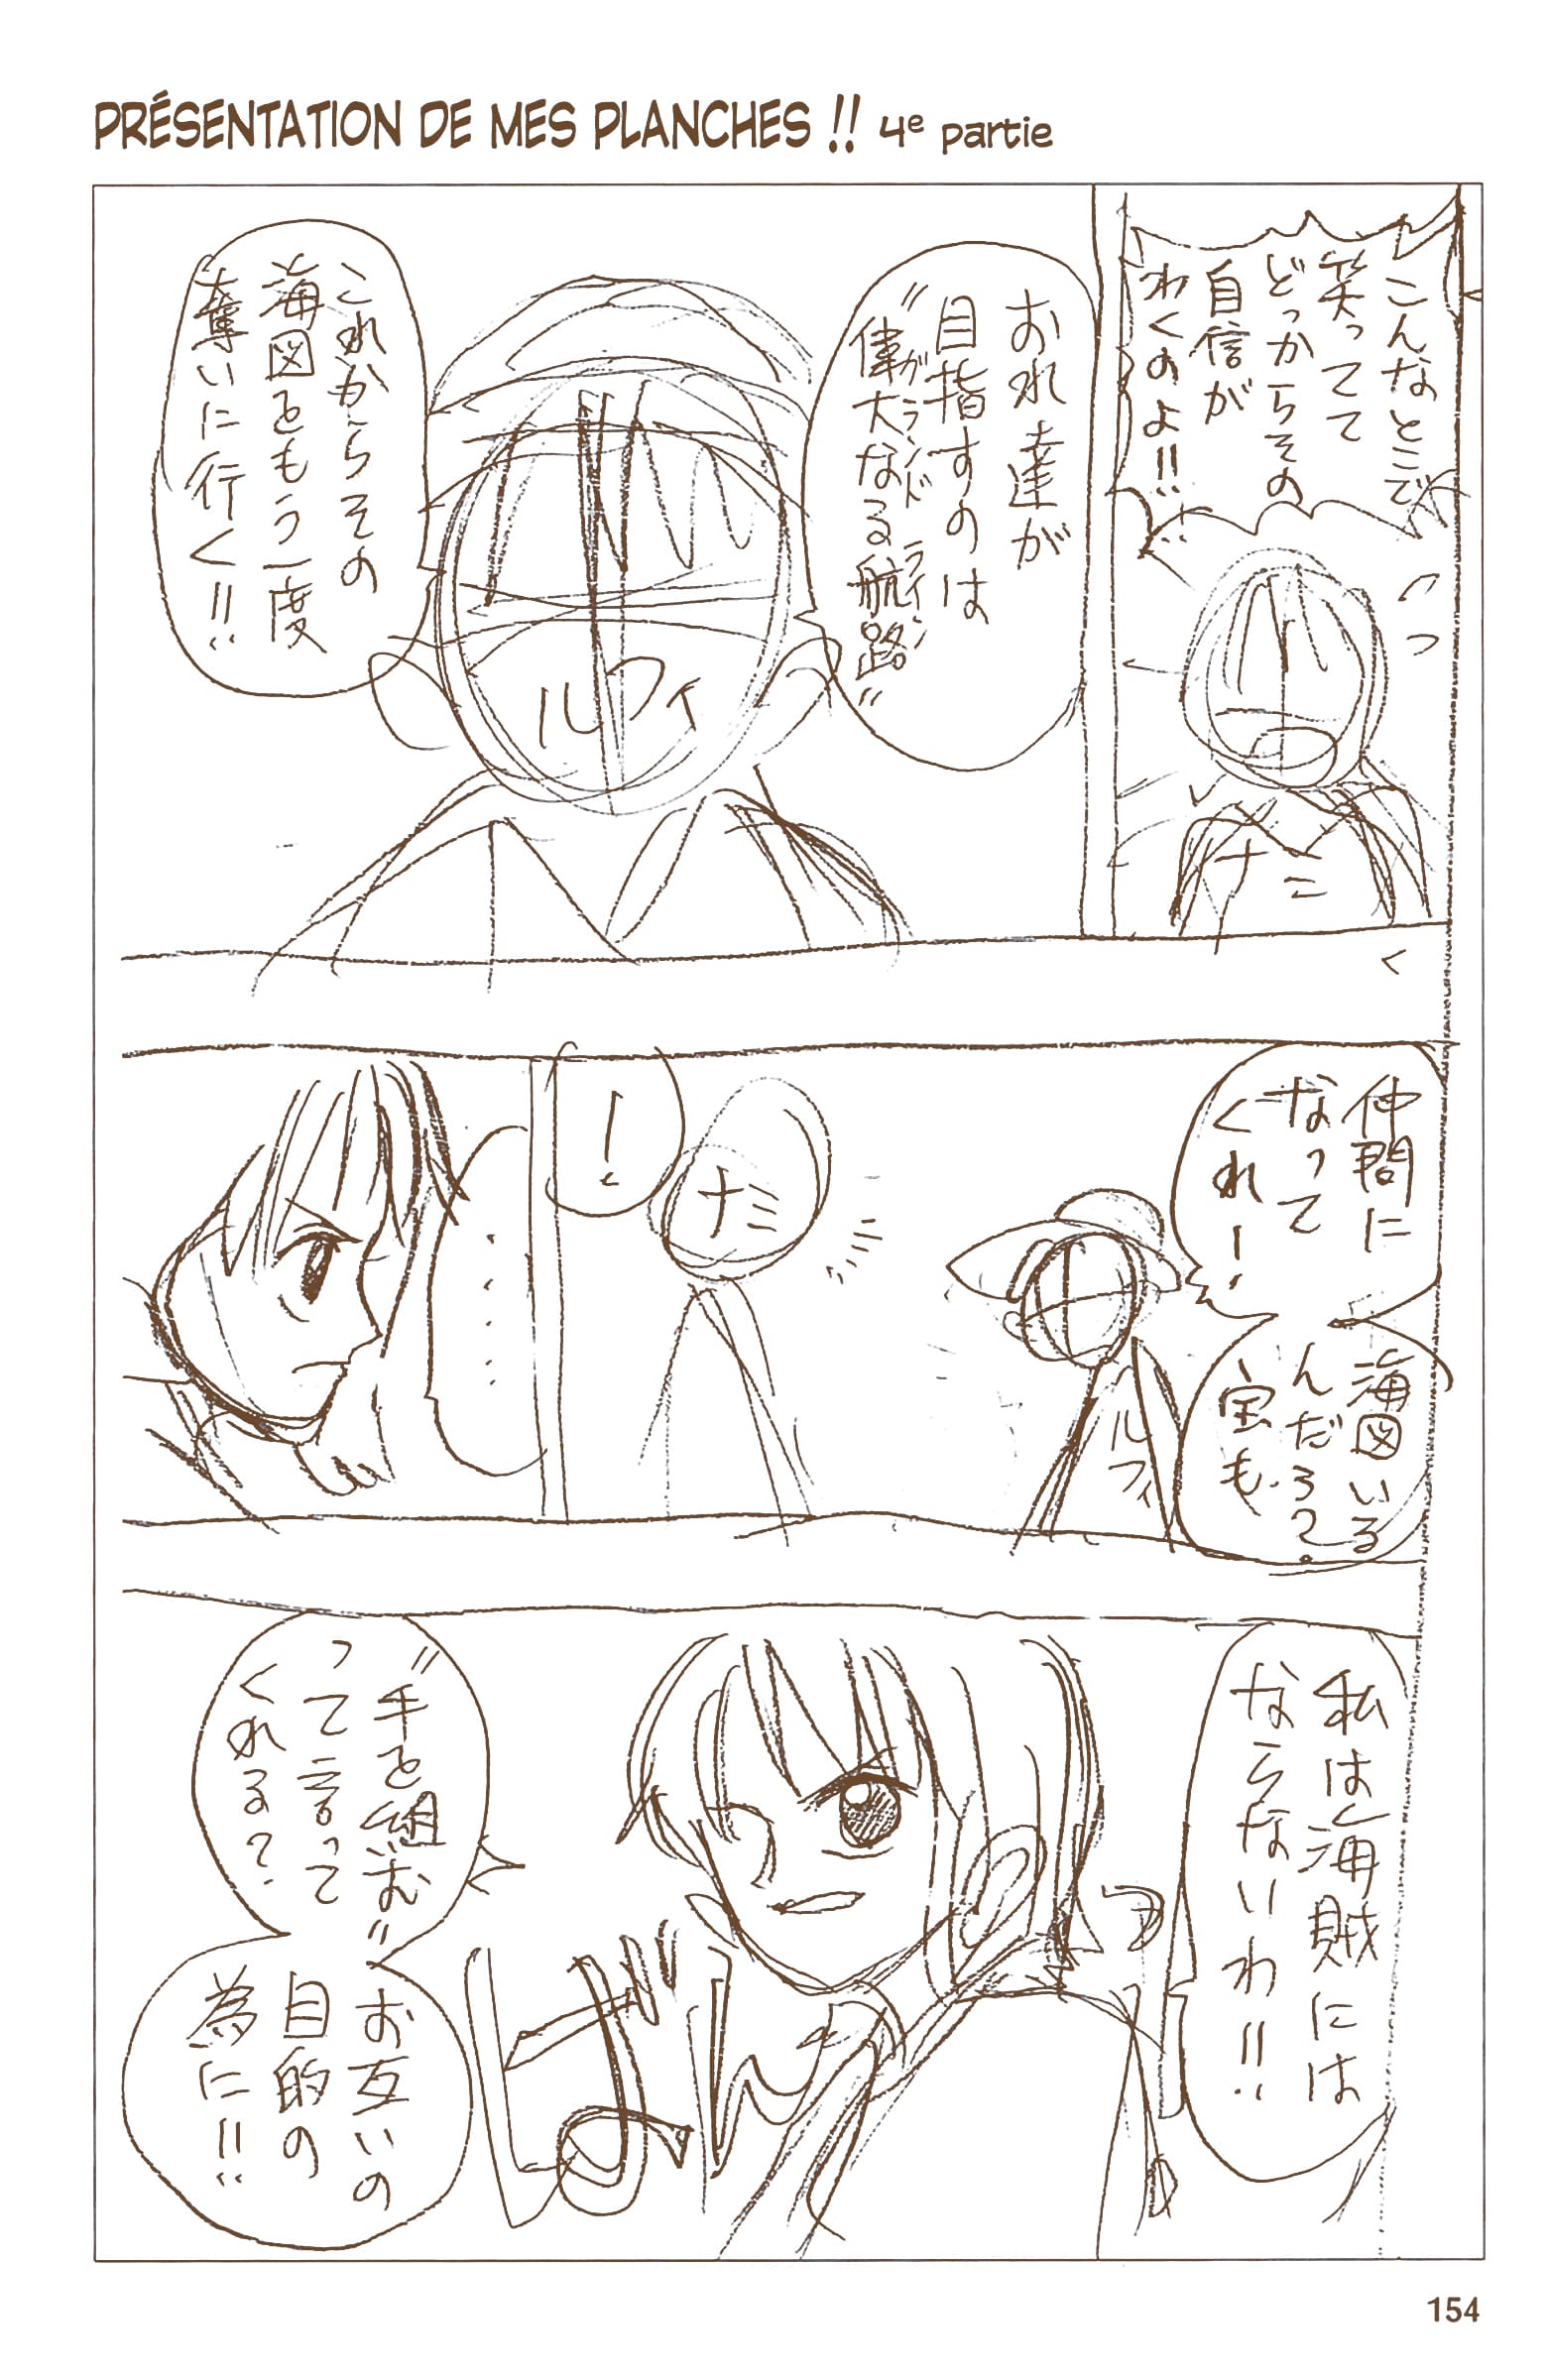 PRÉSENTATION DE MES PLANCHES !! 4e partie
こんなとこで
笑ってて
どっからその
自信が
わくのよ!!
ナミ
おれ達が
目指すのは
"偉大なる航路"
グランドライン
ルフィ
これからその
海図をもう一度
奪いに行く!!
仲間に
なって
くれー!
海図いる
んだろ?
宝も
ルフィ
ナミ
!
・・・・・
私は海賊には
ならないわ!!
"手を組む"
って言って
くれる?
お互いの
目的の
為に!!
ばん
154